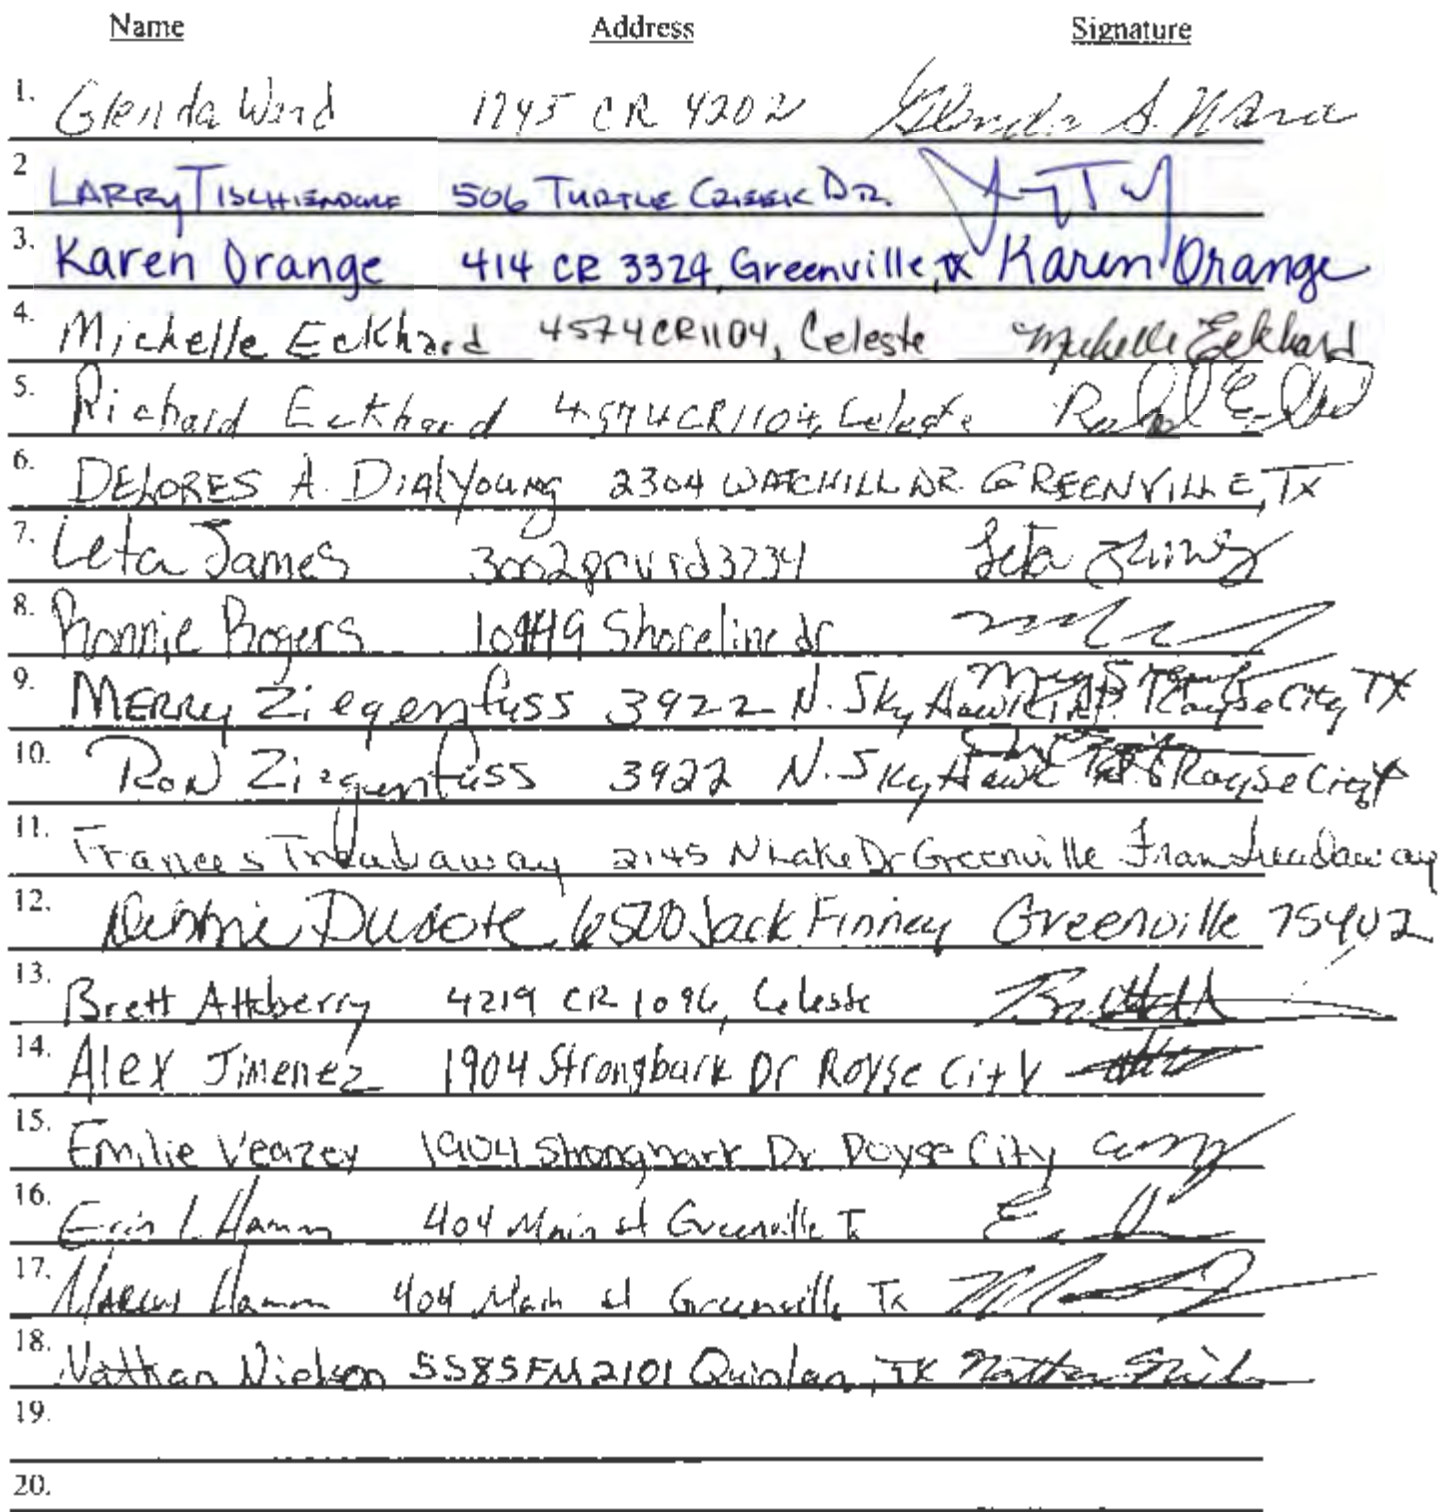 Name Address Signature
1. Glenda Ward 1745 CR 4202 Glenda S. Ward
2 LARRY TISCHENDORF 506 TURTLE CREEK DR.
3. Karen Orange 414 CR 3324, Greenville, TX Karen Orange
4. Michelle Eckhard 4574 CR 1104, Celeste Michelle Eckhard
5. Richard Eckhard 4574 CR 1104, Celeste
6. DELORES A. Dial Young 2304 WATCHILL DR. GREENVILLE, TX
7. Leta James 3002 Leta James
8. Ronnie Rogers 10449 Shoreline dr
9. MERRY Ziegenfuss 3922 N. Sky Hawk Royse City TX
10. RON Ziegenfuss 3922 N. Sky Hawk Royse City
11. Frances Treadaway 2145 N Lake Dr Greenville Fran Treadaway
12. Debbie Dusote 6500 Jack Finney Greenville 75402
13. Brett Atteberry 4219 CR 1096, Celeste
14. Alex Jimenez 1904 Strongbark Dr Royse City
15. Emilie Veazey 1904 Strongbark Dr Royse City
16. Erin L Hamm 404 Main st Greenville Tx
17. Marcus Hamm 404 Main st Greenville Tx
18. Nathan Nielson 5585 FM 2101 Quinlan, TX
19.
20.